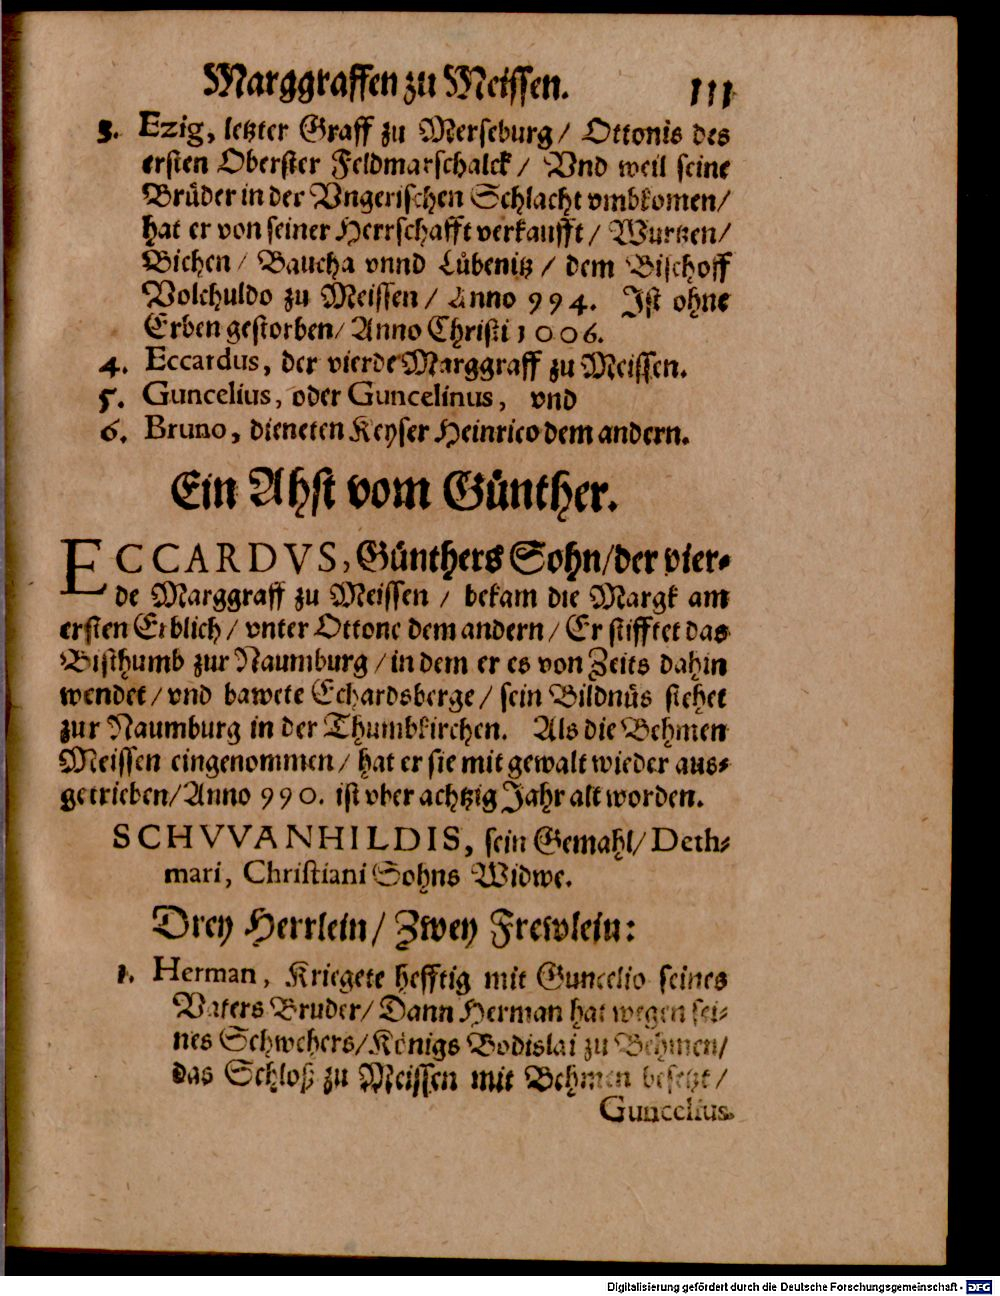 Marggraffen zu Meissen. 111
3. Ezig, letzter Graff zu Merseburg/ Ottonis des
ersten Oberster Feldmarschalck/ Vnd weil seine
Brüder in der Vngerischen Schlacht vmbkomen/
hat er von seiner Herrschafft verkaufft/ Wurtzen/
Bichen/ Baucha vnnd Lübenitz/ dem Bischoff
Volchuldo zu Meissen/ Anno 994. Ist ohne
Erben gestorben/ Anno Christi 1006.
4. Eccardus, der vierde Marggraff zu Meissen.
5. Guncelius, oder Guncelinus, vnd
6. Bruno, dieneten Keyser Heinrico dem andern.
Ein Ahst vom Günther.
ECCARDVS, Günthers Sohn/der vier-
de Marggraff zu Meissen/ bekam die Margk am
ersten Erblich/ vnter Ottone dem andern/ Er stifftet das
Bisthumb zur Naumburg/ in dem er es von Zeits dahin
wendet/ vnd bawete Echardsberge/ sein Bildnüs stehet
zur Naumburg in der Thumbkirchen. Als die Behmen
Meissen eingenommen/ hat er sie mit gewalt wieder aus-
getrieben/Anno 990. ist vber achtzig Jahr alt worden.
SCHVVANHILDIS, sein Gemahl/ Deth-
mari, Christiani Sohns Widwe.
Drey Herrlein/ Zwey Frewlein:
1. Herman, Kriegete hefftig mit Guncelio seines
Vaters Bruder/ Dann Herman hat wegen sei-
nes Schwehers/Königs Bodislai zu Behmen/
das Schloß zu Meissen mit Behmen besetzt/
Guncelius.
Digitalisierung gefördert durch die Deutsche Forschungsgemeinschaft - DFG